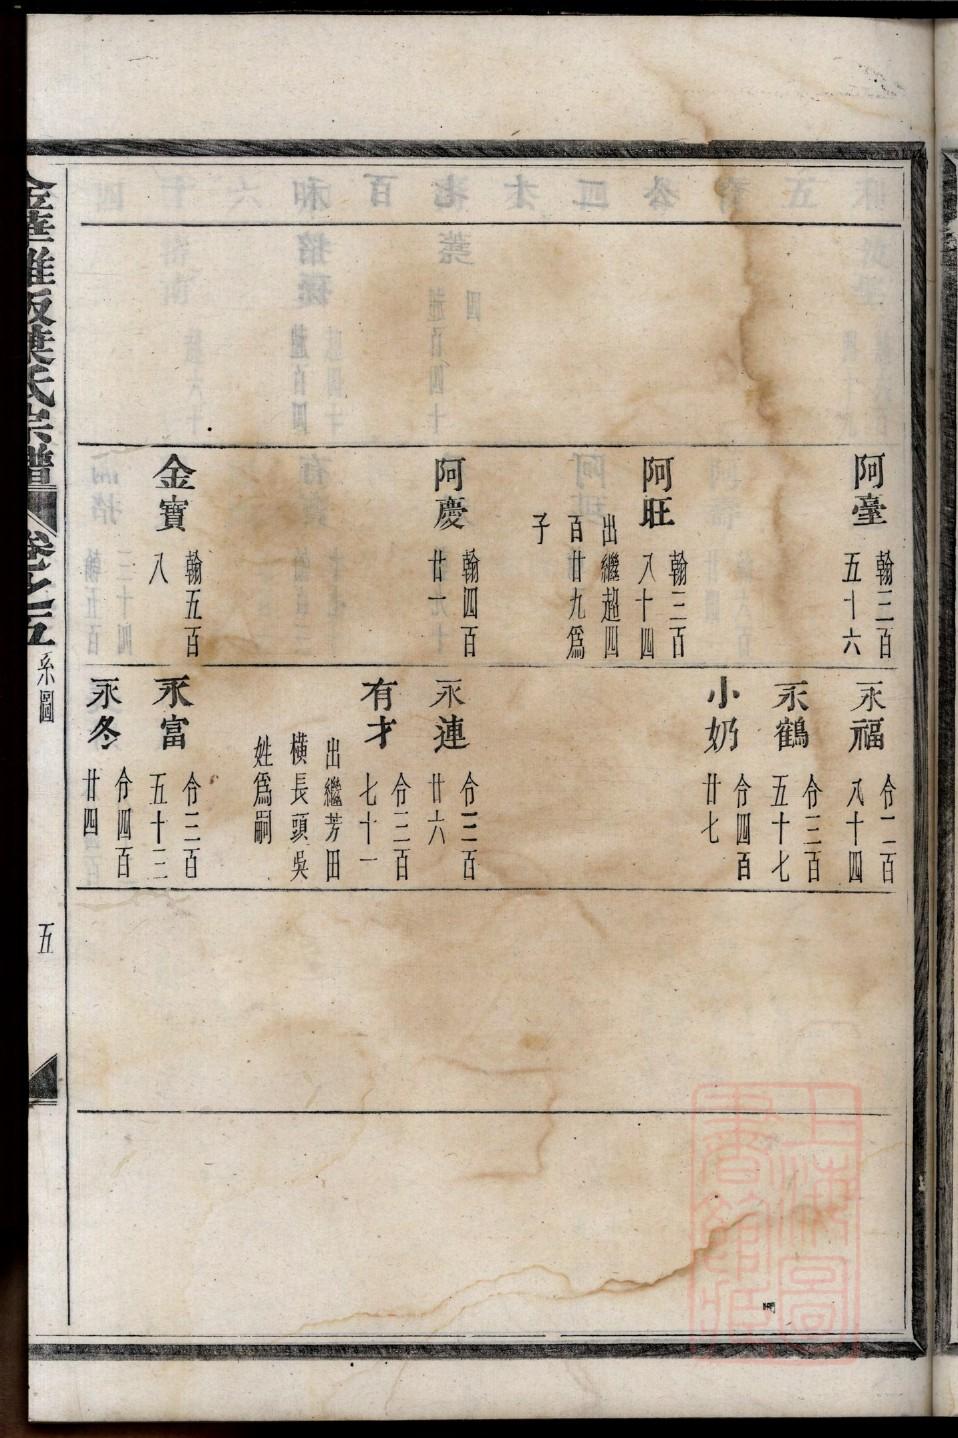 阿臺 翰三百五十六
阿旺 翰三百八十四
出繼超四百廿九爲子
阿慶 翰四百廿一
金寶 翰五百八
永福 令二百八十四
永鶴 令三百五十七
小奶 令四百廿七
永連 令三百廿六
有才 令三百七十一
出繼芳田橫長頭吳姓爲嗣
永富 令三百五十三
永冬 令四百廿四
葉氏宗譜 卷之五 系圖 五